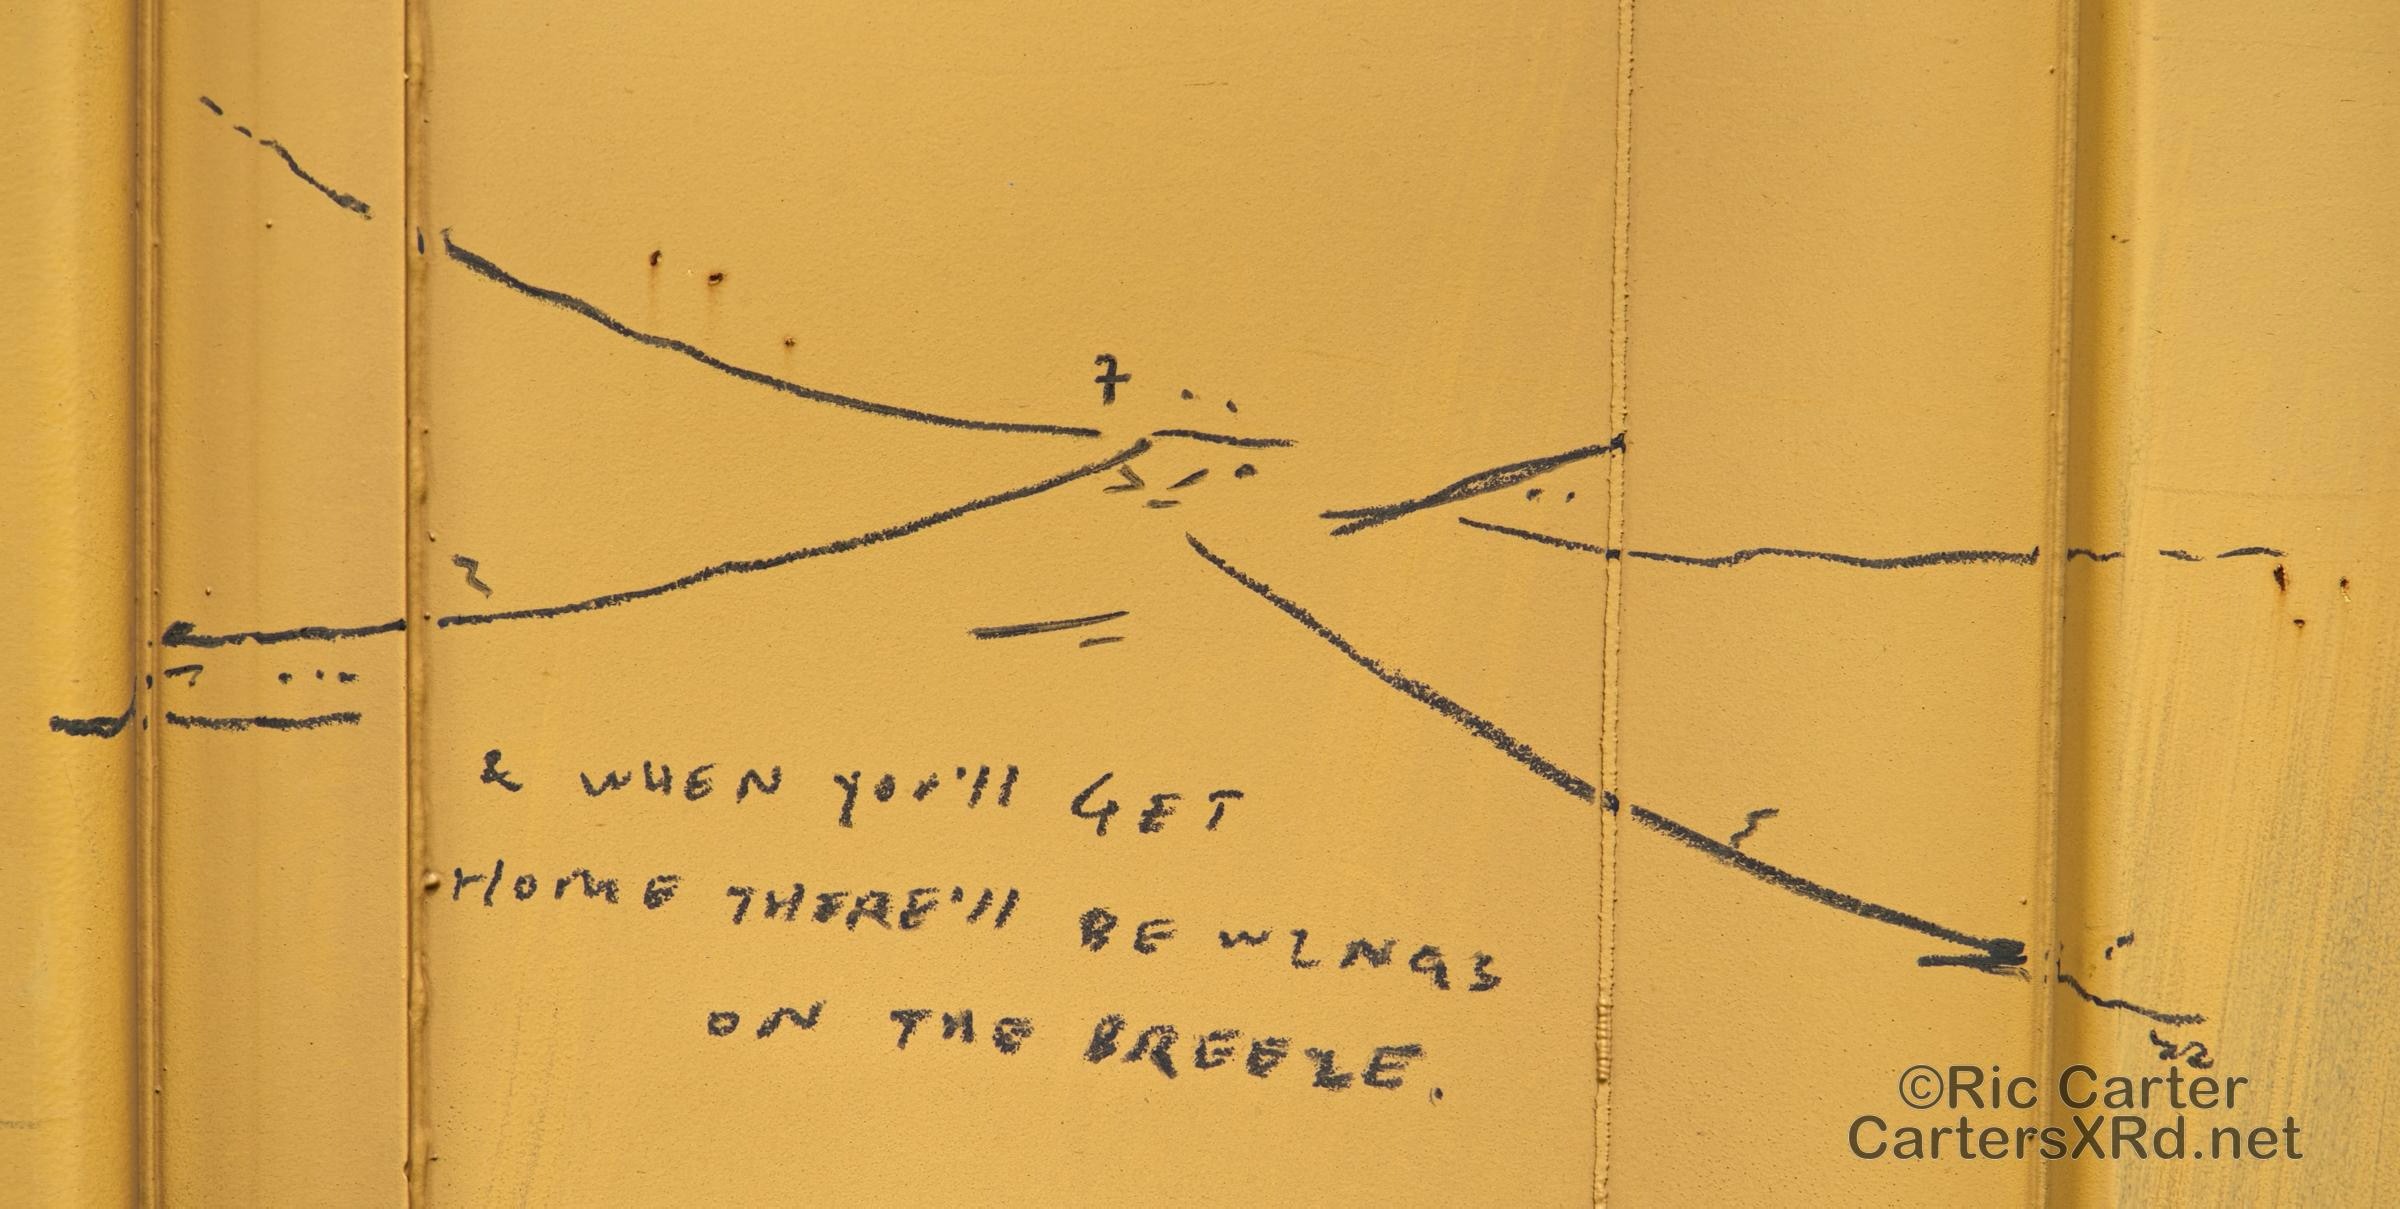 7
& WHEN YOU'll GET
HOME THERE'll BE WINGS
ON THE BREEZE.
©Ric Carter
CartersXRd.net